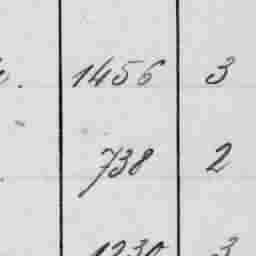 1456 3
738 2
1230 3